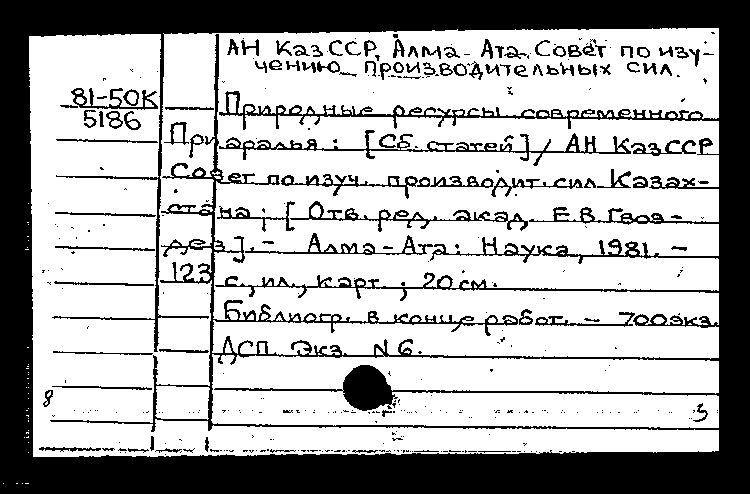 АН КазССР, Алма-Ата. Совет по изу-
чению производительных сил.
81-50К
5186
Природные ресурсы современного
Приаралья: [Сб. статей] / АН КазССР
Совет по изуч. производит. сил Казах-
стана; [Отв. ред. акад. Е.В. Гвоз-
дев]. - Алма-Ата: Наука, 1981. -
123 с., ил., карт.; 20 см.
Библиогр. в конце работ. - 700 экз.
ДСП. Экз. N6.
8
3